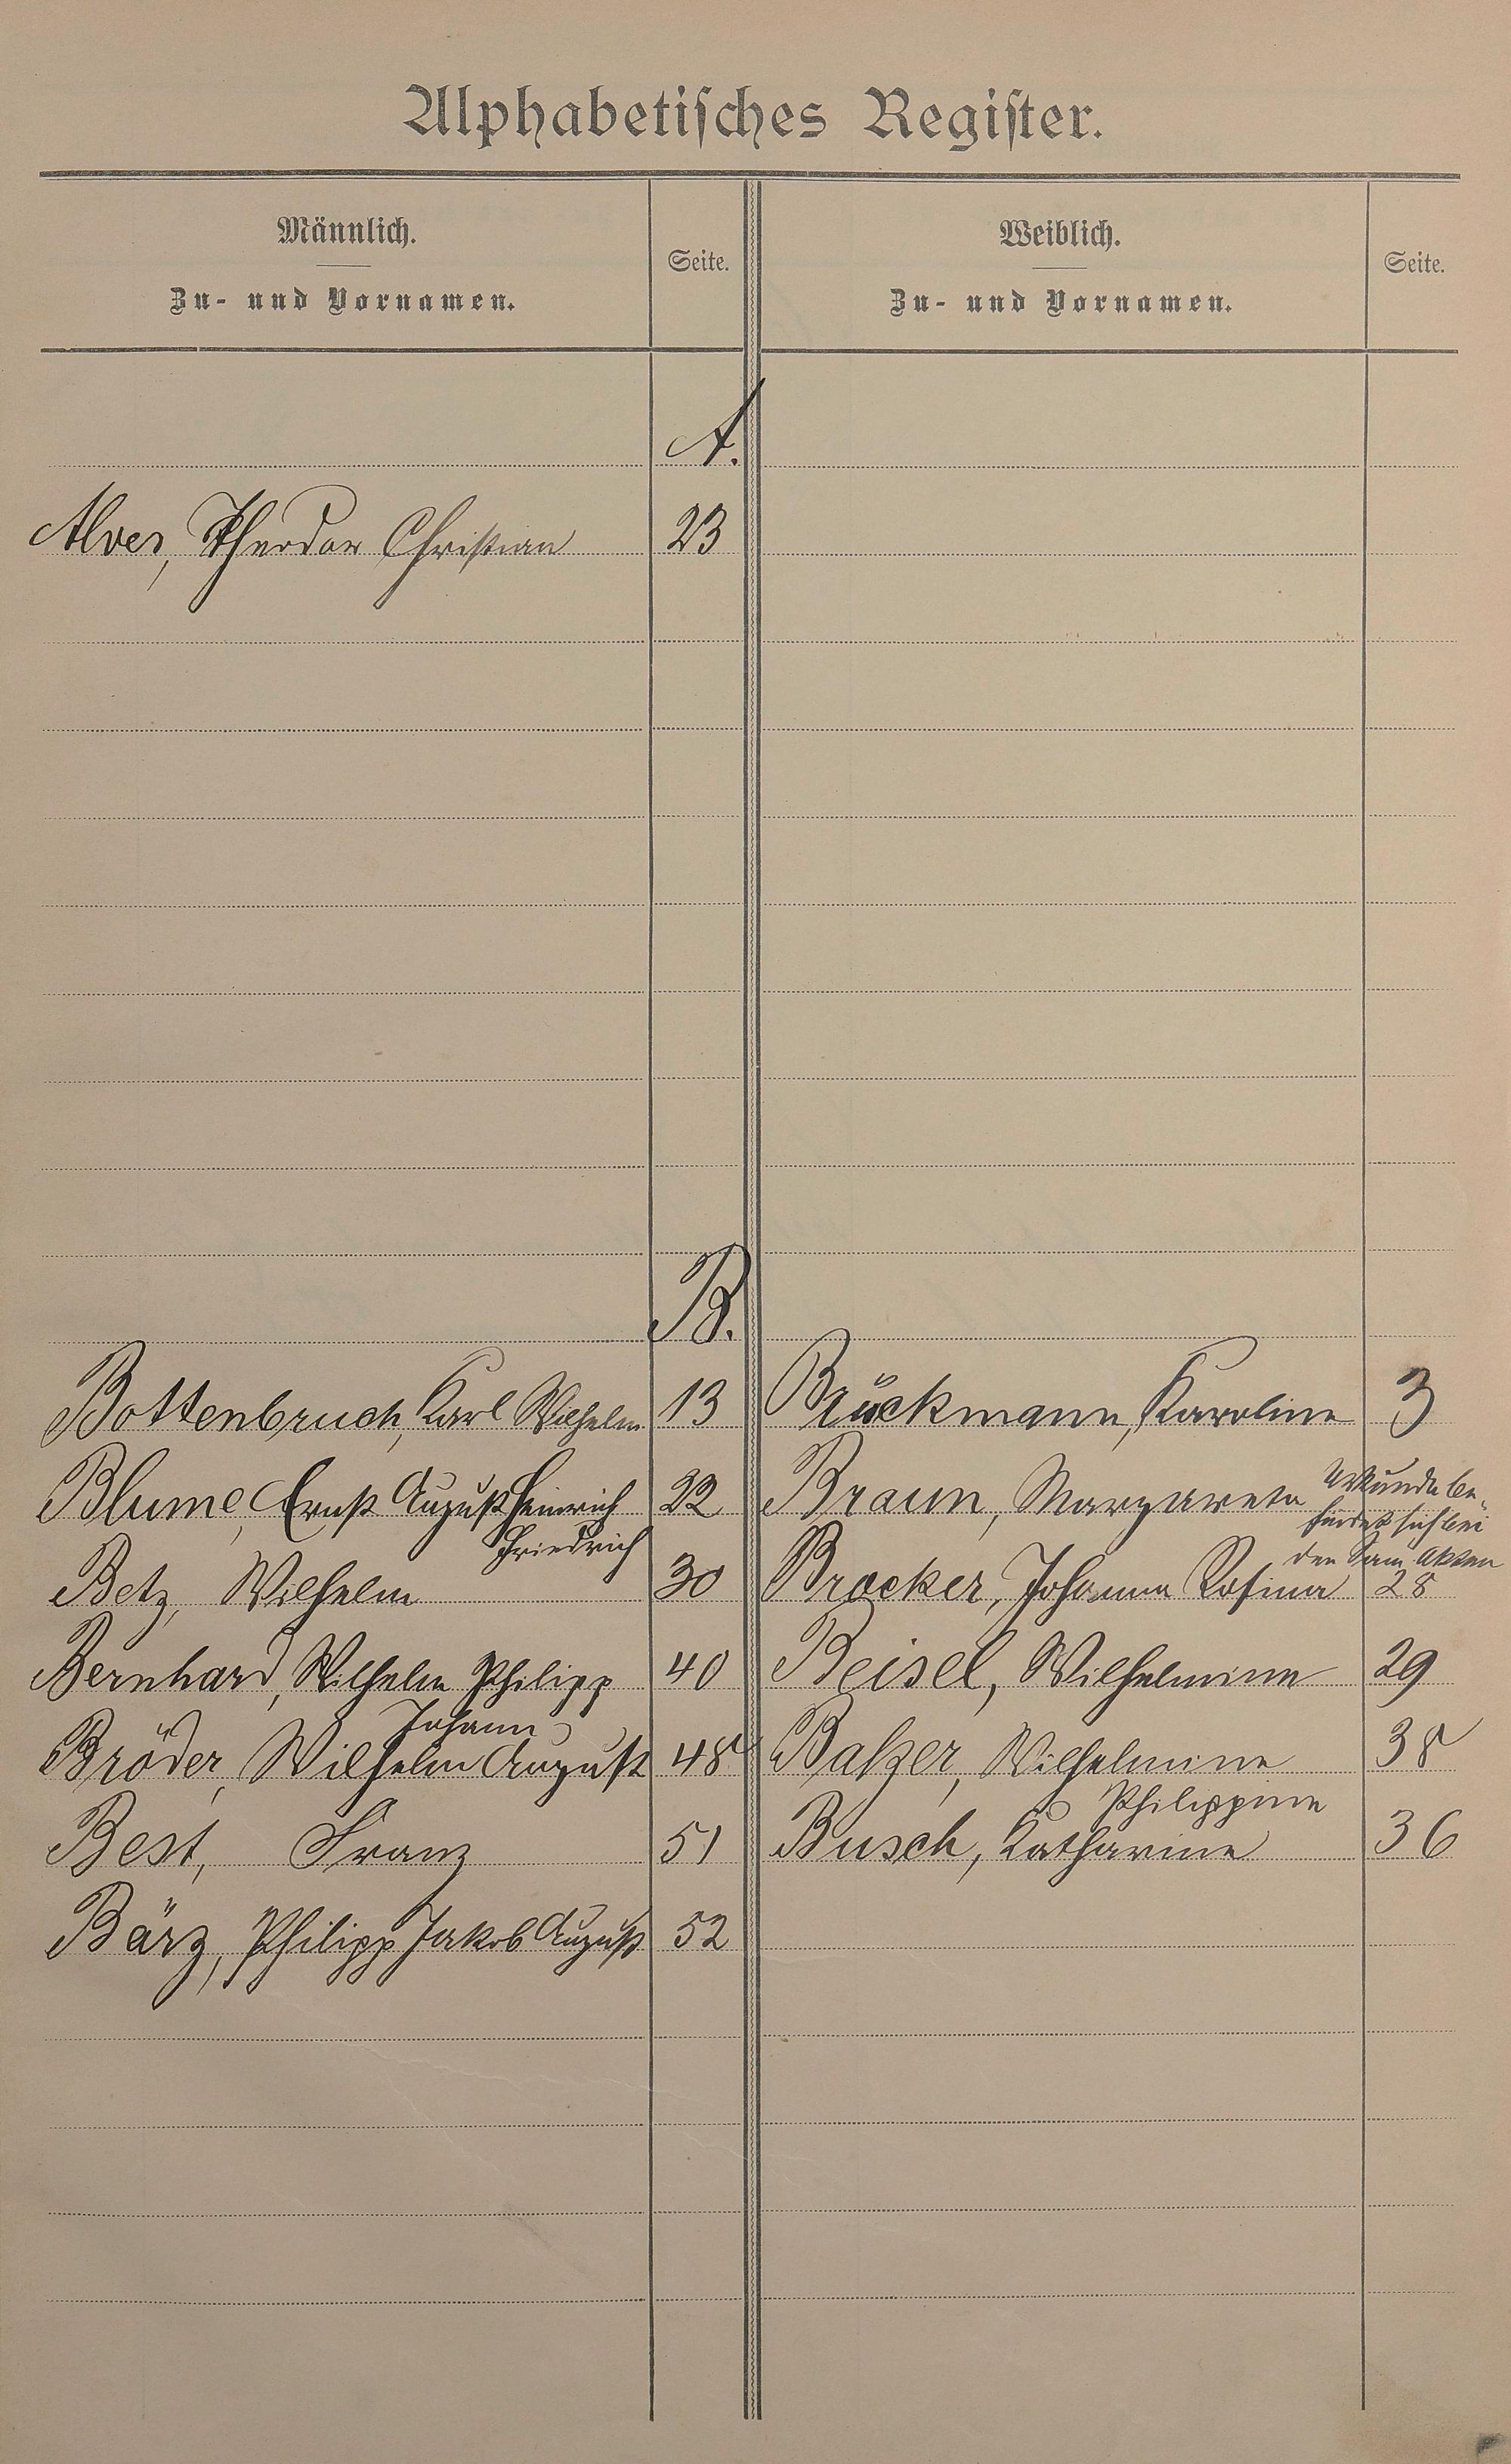 Alphabetisches Register.
Männlich.
Zu- und Vornamen.
Seite.
Weiblich.
Zu- und Vornamen.
Seite.
A.
Alves, Theodor Christian 23
B.
Bottenbruch, Karl Wilhelm 13 Brückmann, Karoline 3
Blume, Ernst August Heinrich 22 Braun, Margareta Urkunde be-
Friedrich findet sich bei
den Sam. Akten
Betz, Wilhelm 30 Brocker, Johanna Rosina 28
Bernhard, Wilhelm Philipp 40 Beisel, Wilhelmine 29
Johann
Bröder, Wilhelm August 48 Balzer, Wilhelmine 38
Philippine
Best, Franz 51 Busch, Katharine 36
Bärz, Philipp Jakob August 52